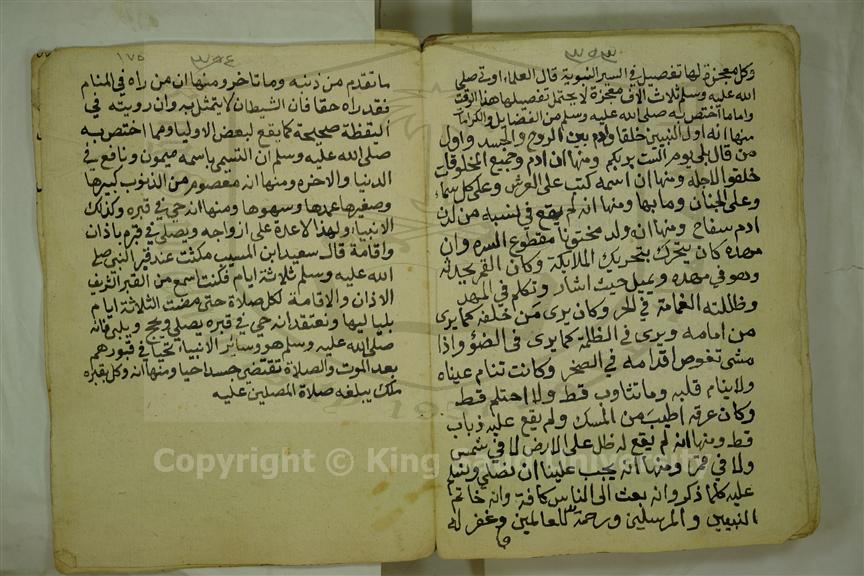 ٣٥٣
وكل معجزة لها تفصيل في السير النبوية قال العلماء اوتي صلى
الله عليه وسلم ثلاث آلاف معجزة لا يحتمل تفصيلها هذا الوقت
واما ما اختص به صلى الله عليه وسلم من الفضايل والكرامات
منها انه اول النبيين خلقا وادم بين الروح والجسد واول
من قال بلى يوم الست بربكم ومنها ان ادم وجميع المخلوقات
خلقوا لاجله ومنها ان اسمه كتب على العرش وعلى كل سماء
وعلى الجنان وما بها ومنها انه لم يقع في نسبه من لدن
ادم سفاح ومنها ان ولد مختونا مقطوع السره وان
مهده كان يتحرك بتحريك الملايكة وكان القمر يحدثه
وهو في مهده ويميل حيث اشار وتكلم في المهد
وظللته الغمامة في الحر وكان يرى من خلفه كما يرى
من امامه ويرى في الظلمة كما يرى في الضؤ واذا
مشى تغوص اقدامه في الصخر وكانت تنام عيناه
ولا ينام قلبه وما تثاوب قط ولا احتلم قط
وكان عرقه اطيب من المسك ولم يقع عليه ذباب
قط ومنها انه لم يقع له ظل على الارض لا في شمس
ولا في قمر ومنها انه يجب علينا ان نصلي ونسلم
عليه كلما ذكر وانه بعث الى الناس كافة وانه خاتم
النبيين والمرسلين ورحمة للعالمين وغفر له
٣٥٤
١٧٥
ما تقدم من ذنبه وما تاخر ومنها ان من راه في المنام
فقد راه حقا فان الشيطان لا يتمثل به وان رويته في
اليقظة صحيحة كما يقع لبعض الاوليا ومما اختص به
صلى الله عليه وسلم ان التسمي باسمه ميمون ونافع في
الدنيا والاخره ومنها انه معصوم من الذنوب كبيرها
وصغيرها عمدها وسهوها ومنها انه حي في قبره وكذلك
الانبيا، ولهذا لا عدة على ازواجه ويصلي في قبره باذان
واقامة قال سعيد ابن المسيب مكثت عند قبر النبي صلى
الله عليه وسلم ثلاثة ايام فكنت اسمع من القبر الشريف
الاذان والاقامة لكل صلاة حتى مضت الثلاثة ايام
بلياليها ونعتقد انه حي في قبره يصلي ويحج ويلبي فانه
صلى الله عليه وسلم هو وساير الانبيا، تحيا في قبورهم
بعد الموت والصلاة تقتضي جسدا حيا ومنها انه وكل بقبره
ملك يبلغه صلاة المصلين عليه
Copyright © King Saud University